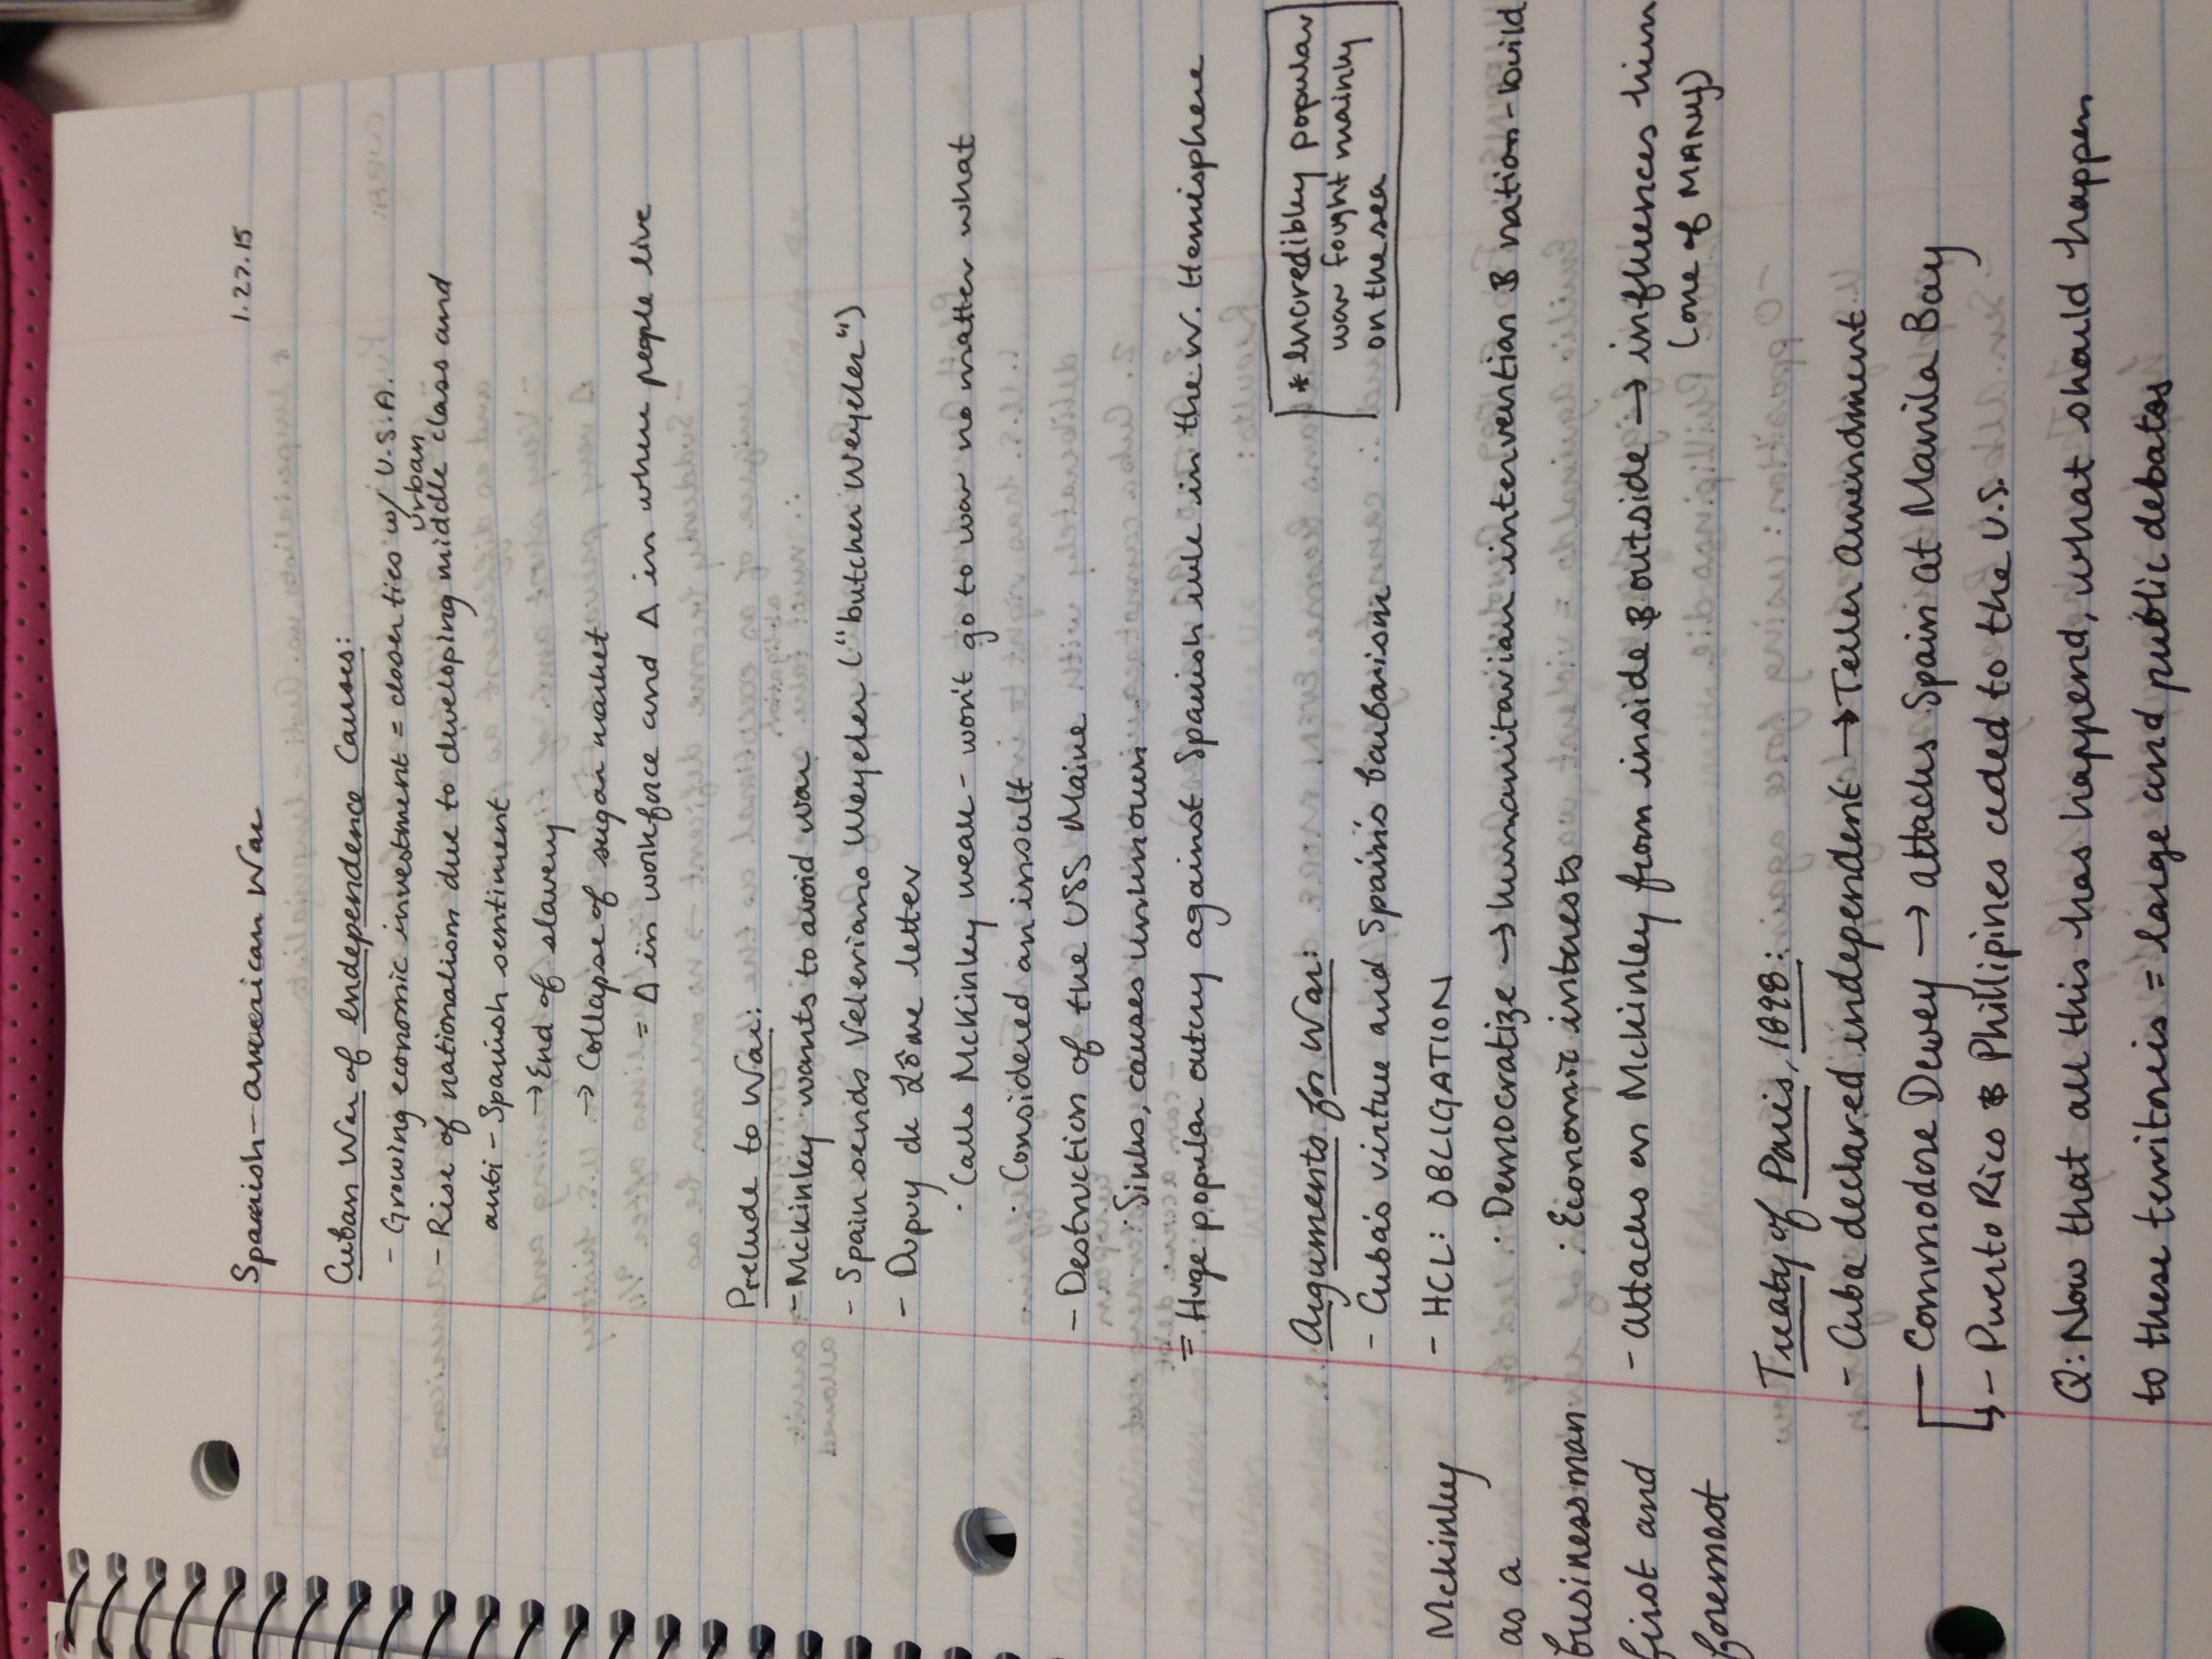 Spanish-American War 1.22.15
Cuban War of Independence Causes:
- Growing economic investment = closer ties w/ U.S.A.
urban
- Rise of nationalism due to developing middle class and
anti-Spanish sentiment
→ End of slavery
→ Collapse of sugar market
= Δ in workforce and Δ in where people live
Prelude to War:
- McKinley wants to avoid war
- Spain sends Valeriano Weyler ("butcher Weyler")
- Dupuy de Lôme letter
· Calls McKinley weak - won't go to war no matter what
· Considered an insult
- Destruction of the USS Maine
· Sinks, causes unknown
= Huge popular outcry against Spanish rule in the W. Hemisphere
* Incredibley popular
war fought mainly
on the sea
Arguments for War:
- Cuba's virtue and Spain's barbarism
- HCL: OBLIGATION
· Democratize → humanitarian intervention & nation-build
· Economic interests
- Attacks on McKinley from inside & outside → influences him
(one of MANY)
McKinley
as a
businessman
first and
foremost
Treaty of Paris, 1898:
- Cuba declared independent → Teller Amendment
- Commodore Dewey → attacks Spain at Manila Bay
↳ - Puerto Rico & Phillipines ceded to the U.S.
Q: Now that all this has happend, what should happen
to these territories = large and public debates